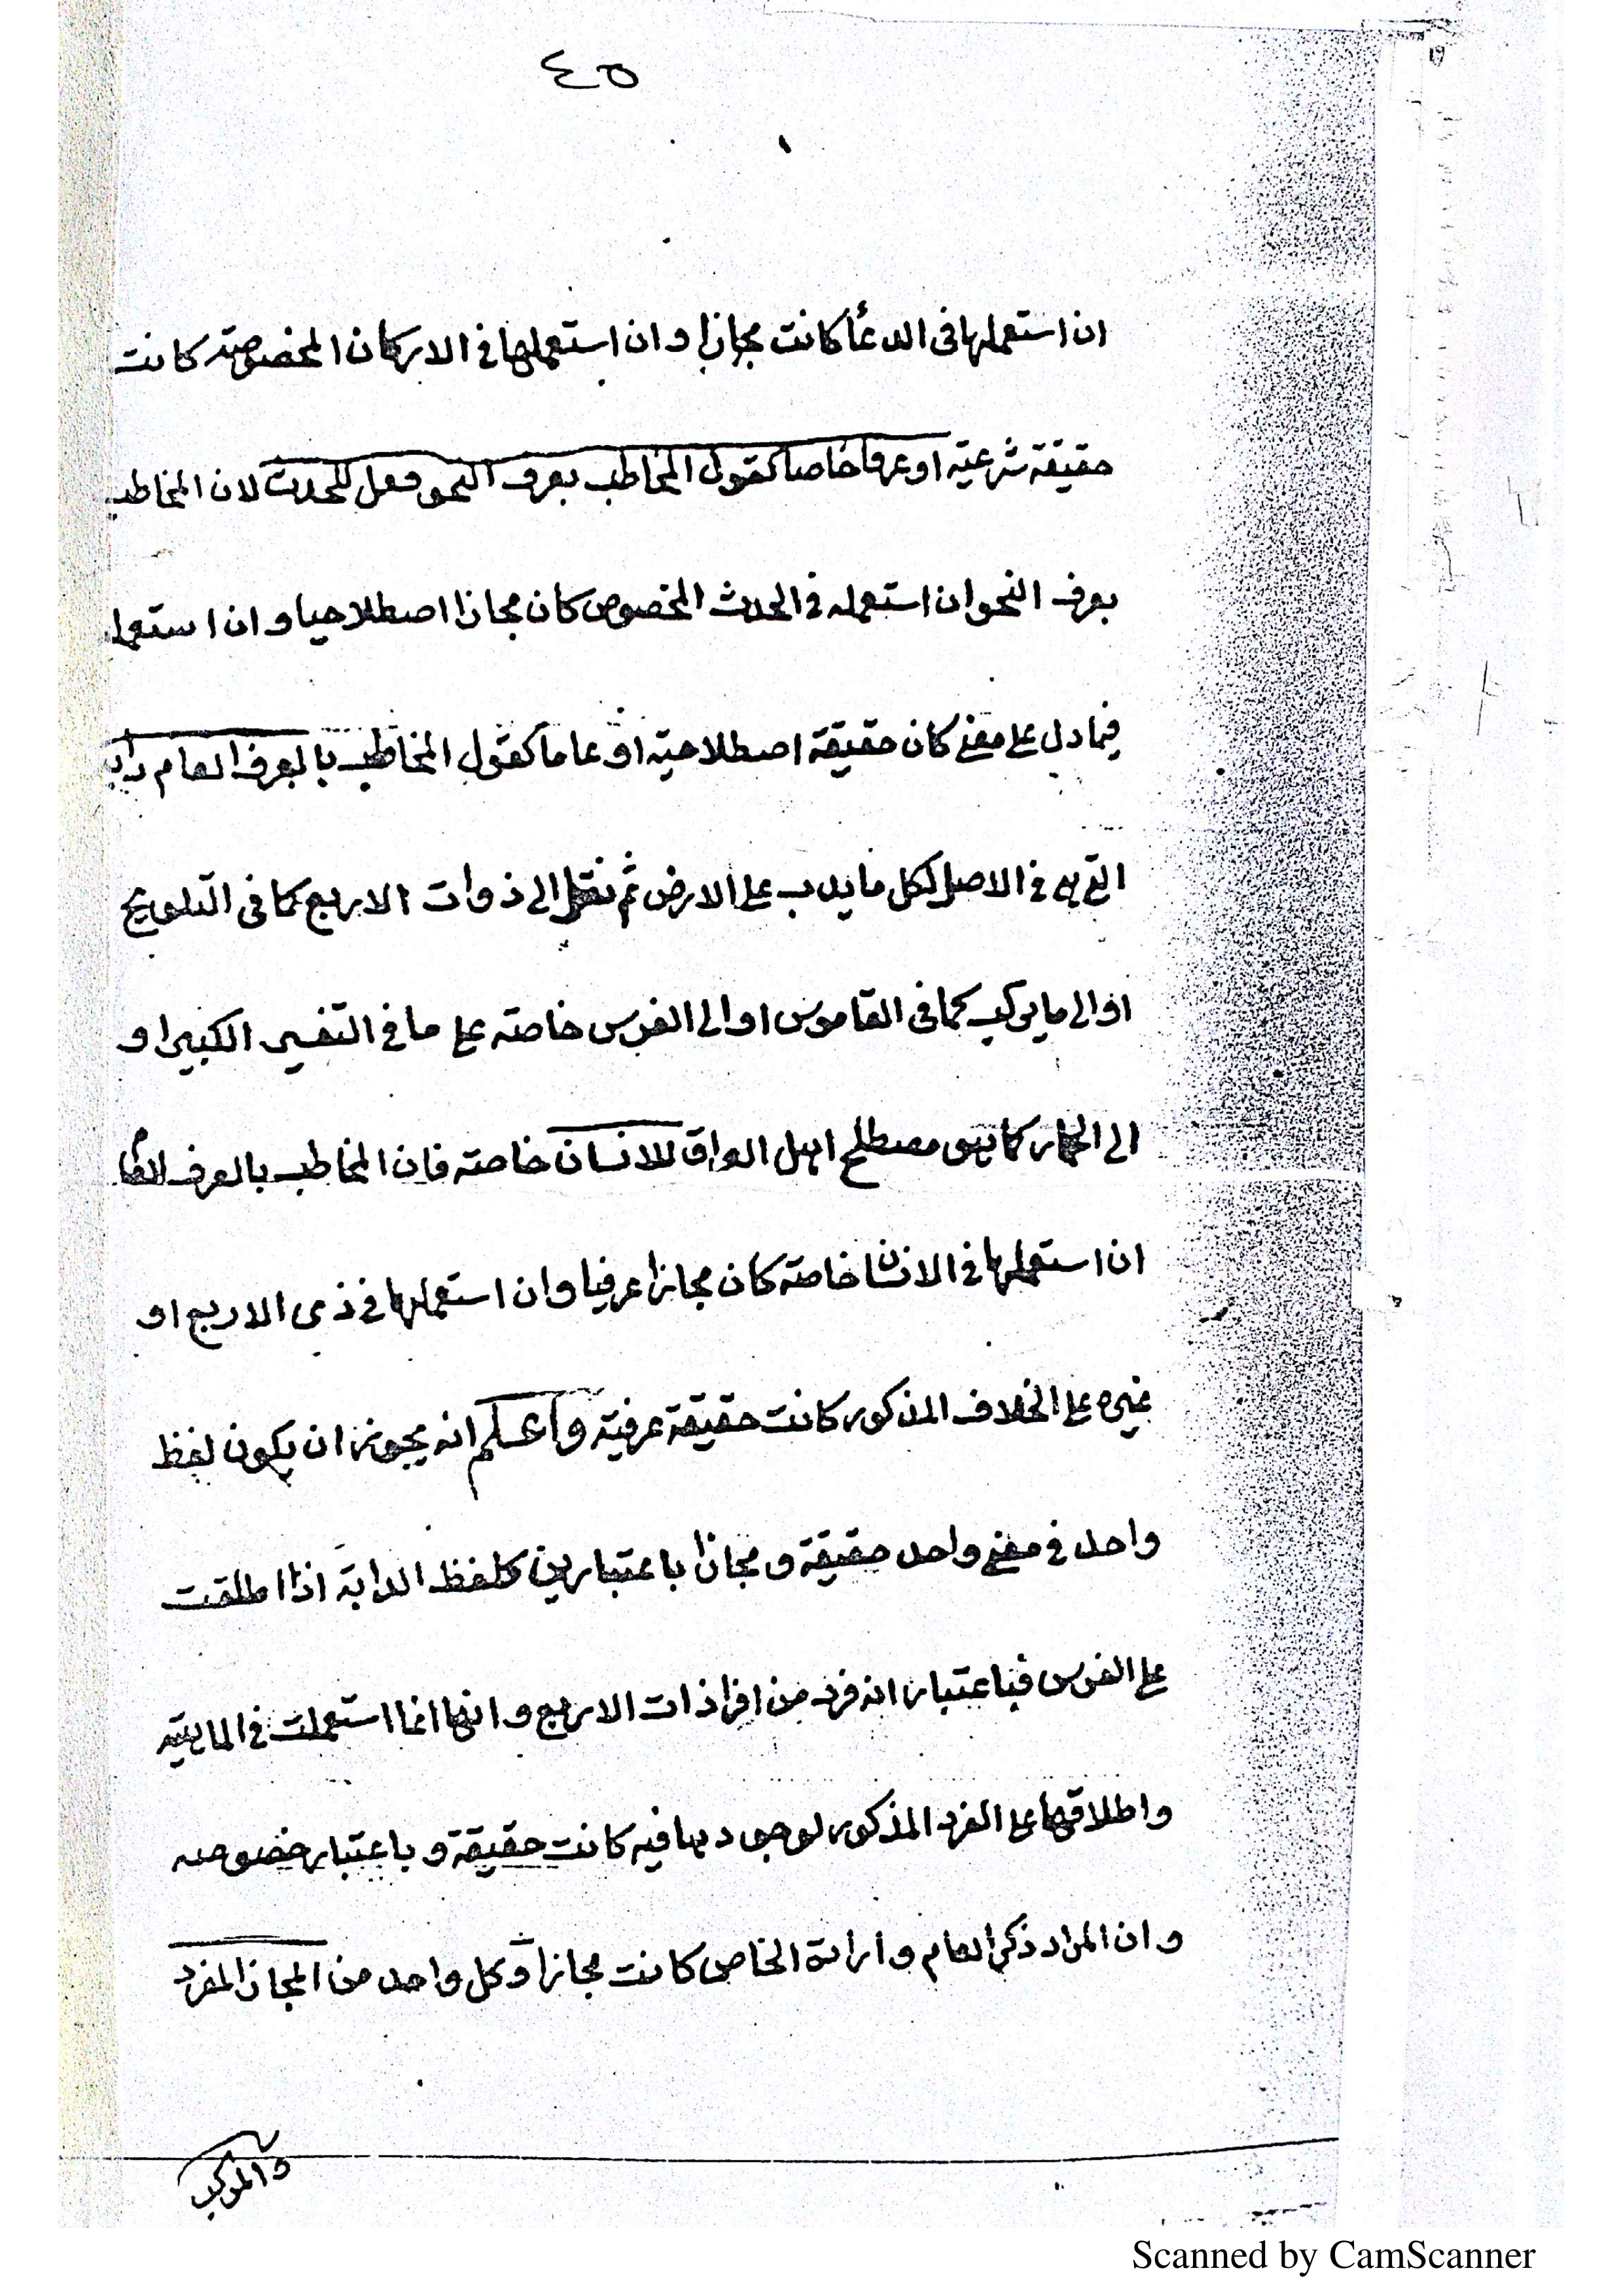 ٤٥
ان استعملها فى الدعأ كانت مجازا وان استعملها فى الاركان المخصوصة كانت
حقيقة شرعية او عرفا خاصا كقول المخاطب بعرف النحو فعل للحدث لان المخاطب
بعرف النحو ان استعمله فى الحدث المخصوص كان مجازا اصطلاحيا وان استعمله
فيما دل على معنى كان حقيقة اصطلاحية او عاما كقول المخاطب بالعرف العام دابة
التى هى فى الاصل لكل ما يدب على الارض ثم نقل الى ذوات الاربع كما فى التلويح
او الى ما يركب كما فى القاموس او الى الفرس خاصة على ما فى التفسير الكبير او
الى الحمار كما هو مصطلح اهل العراق للانسان خاصة فان المخاطب بالعرف العام
ان استعملها فى الانسان خاصة كان مجازا عرفيا وان استعملها فى ذى الاربع او
غيره على الخلاف المذكور كانت حقيقة عرفية واعلم انه يجوز ان يكون لفظ
واحد فى معنى واحد حقيقة و مجازا باعتبارين كلفظ الدابة اذا اطلقت
على الفرس فباعتبار انه فرد من افراد ذات الاربع و انها انما استعملت فى الماهية
و اطلاقها على الفرد المذكور لوجودها فيه كانت حقيقة و باعتبار خصوصه
و ان المراد ذكر العام و ارادة الخاص كانت مجازا و كل واحد من المجاز المفرد
و المركب
Scanned by CamScanner